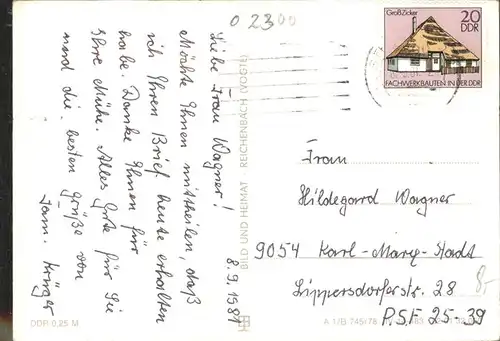 0 2300
Groß Zicker
20
DDR
FACHWERKBAUTEN IN DER DDR
8.9.1981
Liebe Frau Wagner!
Möchte Ihnen mitteilen, daß
ich Ihren Brief heute erhalten
habe. Danke Ihnen für
Ihre Mühe. Alles Gute für Sie
und die besten Grüße von
Fam. Krüger
BILD UND HEIMAT · REICHENBACH (VOGTL)
Frau
Hildegard Wagner
9054 Karl-Marx-Stadt
Lippersdorferstr. 28
PSF 25-39
8,-
DDR 0,25 M
A 1/B 745/78